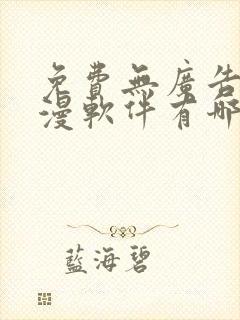 免費無廣告
漫軟件有哪
藍海碧